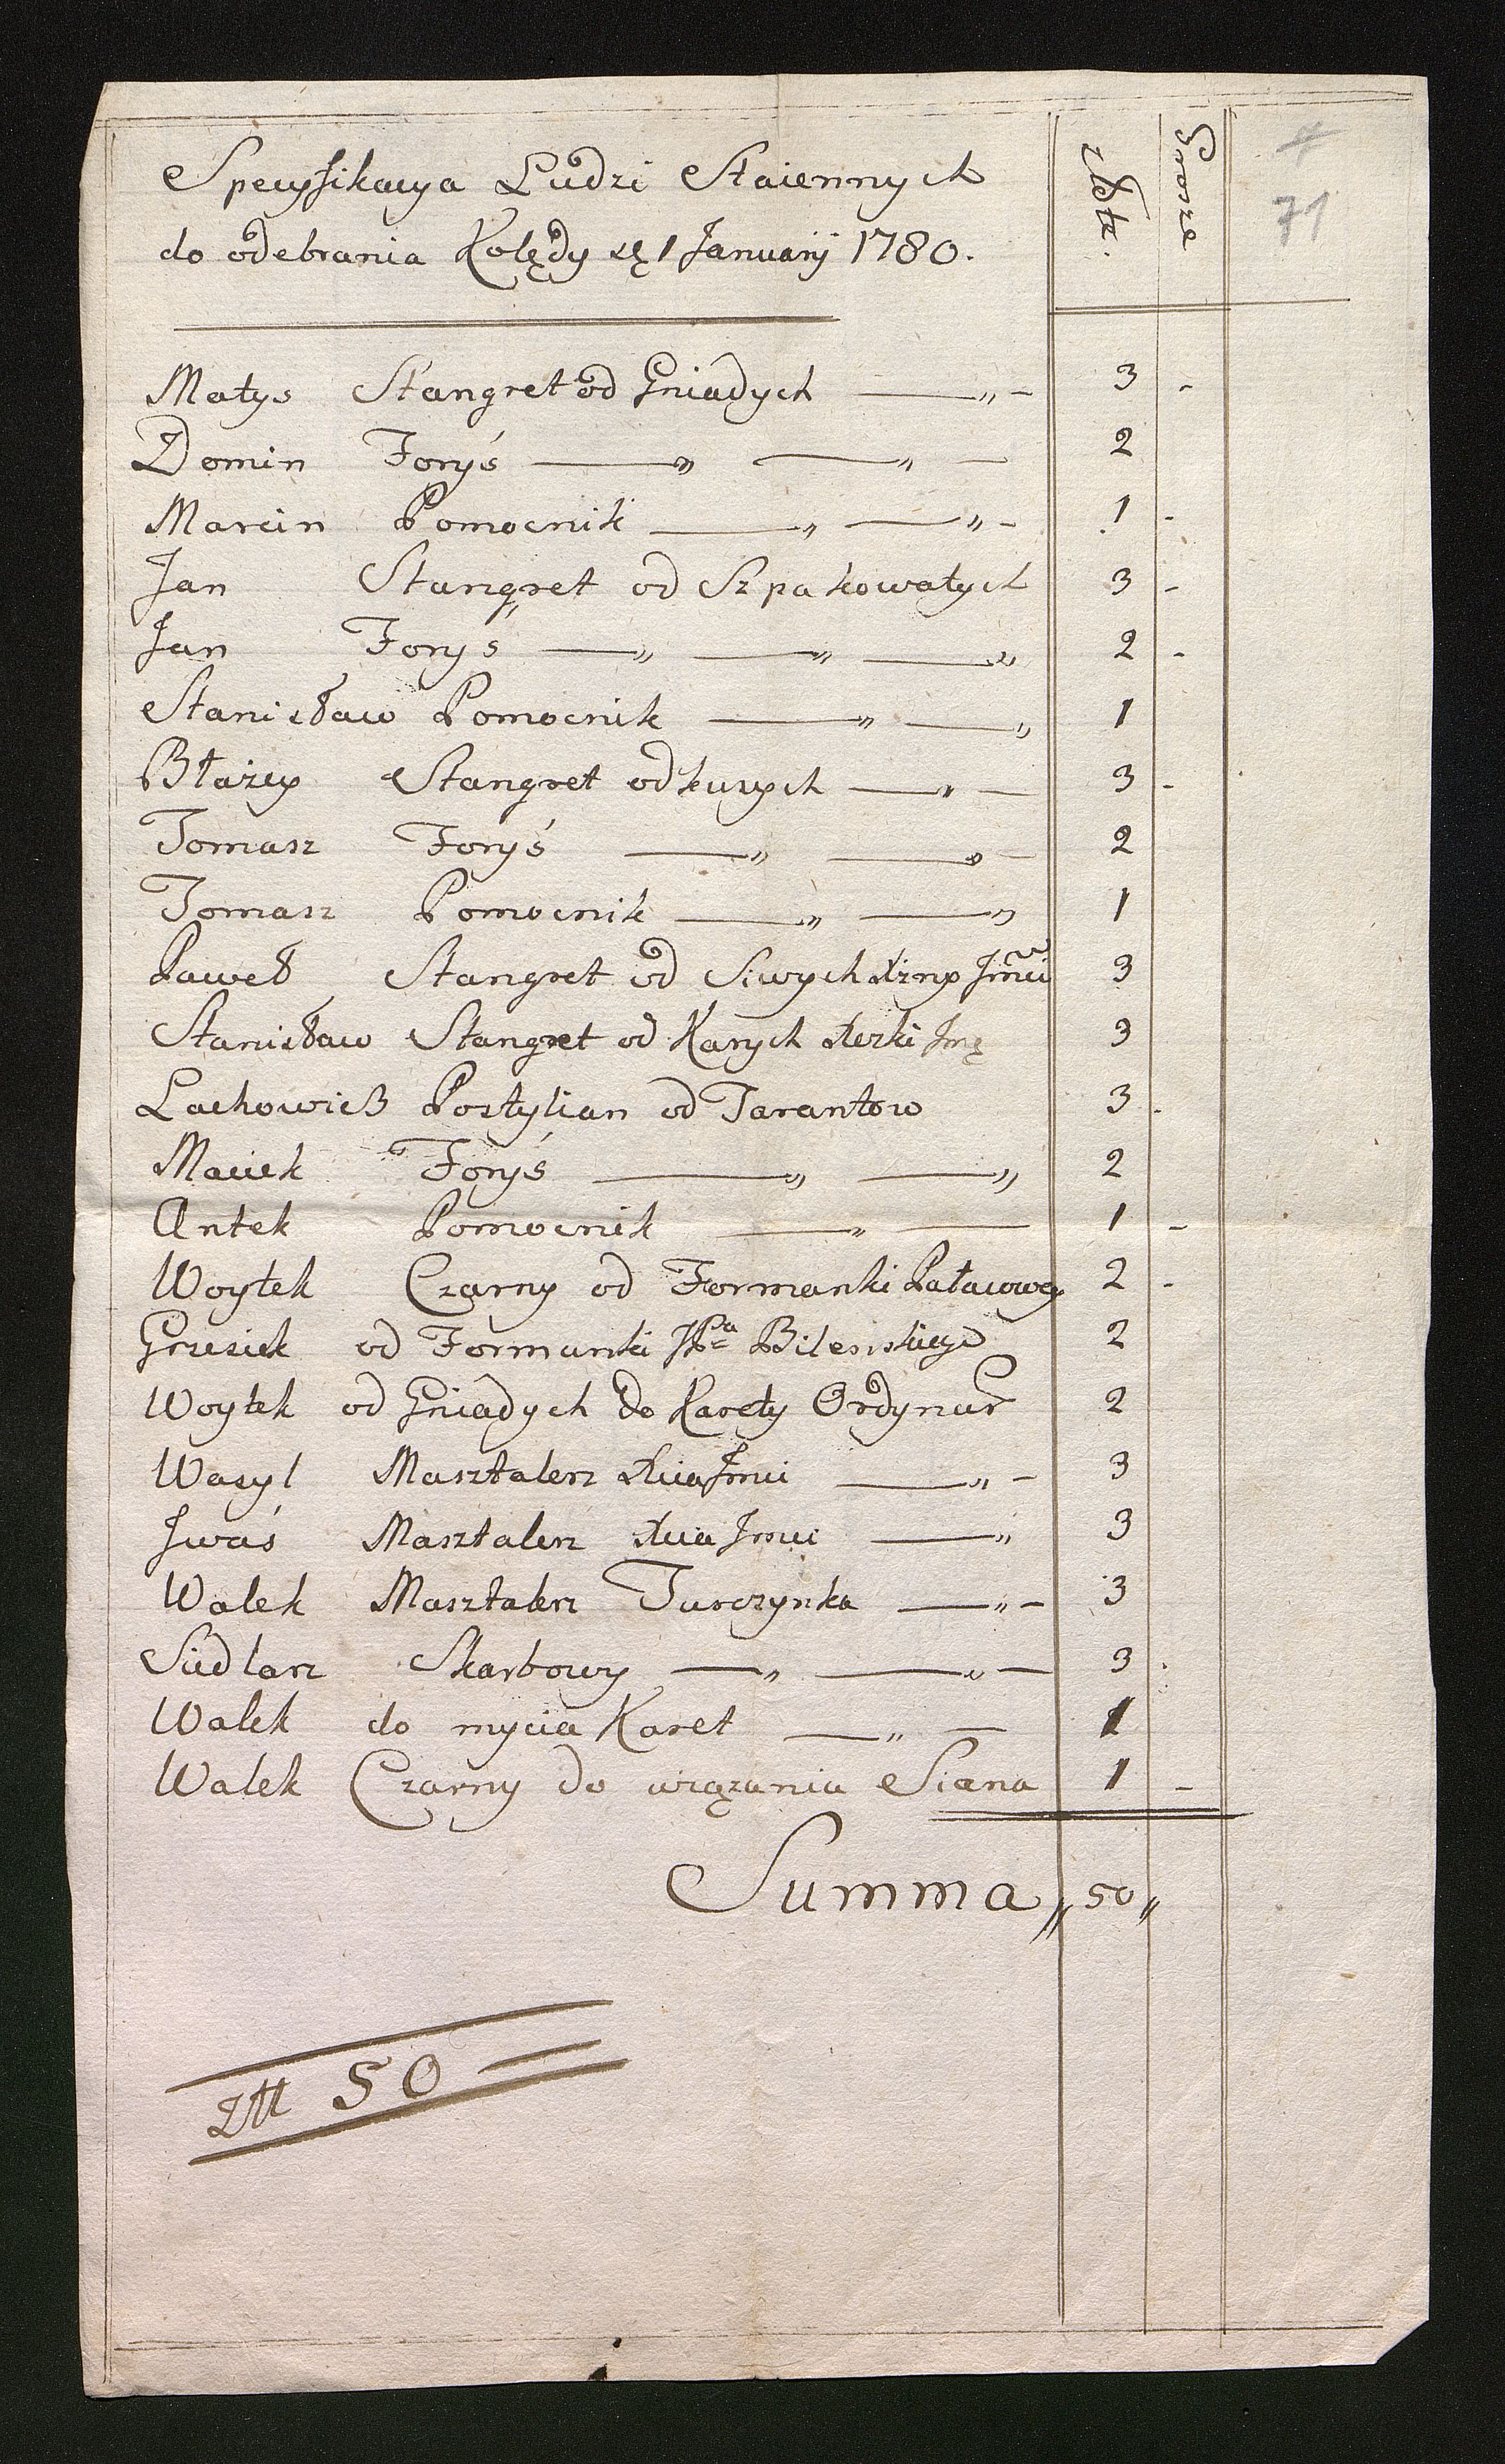 Specyfikacya Ludzi Staiennych
do odebrania Kolędy 1 January 1780.
Złote.
Grosze
71
Matys Stangret od Gniadych — „ — 3 -
Domin Foryś — „ — „ — 2
Marcin Pomocnik — „ — „ - 1 -
Jan Stangret od Szpakowatych 3 -
Jan Foryś — „ — „ — „ 2 -
Stanisław Pomocnik — „ — „ 1
Błażey Stangret od kurych — „ — 3 -
Tomasz Foryś — „ — „ — 2
Tomasz Pomocnik — „ — „ 1
Paweł Stangret od Siwych Jmci 3
Stanisław Stangret od Karych 3
Lachowicz Postylian od Tarantow 3 -
Maciek Foryś — „ — „ 2
Antek Pomocnik — „ — 1 -
Woytek Czarny od Formanki Pałacowey 2 -
Grzesiek od Formanki JPa Bilenskiego 2
Woytek od Gniadych do Karety 2
Wasyl Masztalerz Jmci — „ — 3
Jwaś Masztalerz Jmci — „ 3
Walek Masztalerz Turczynka — „ — 3
Siedlarz Skarbowy — „ — „ — 3 -
Walek do mycia Karet — „ — 1
Walek Czarny do wiązania Siana 1 -
Summa „ 50 „
złł 50 =